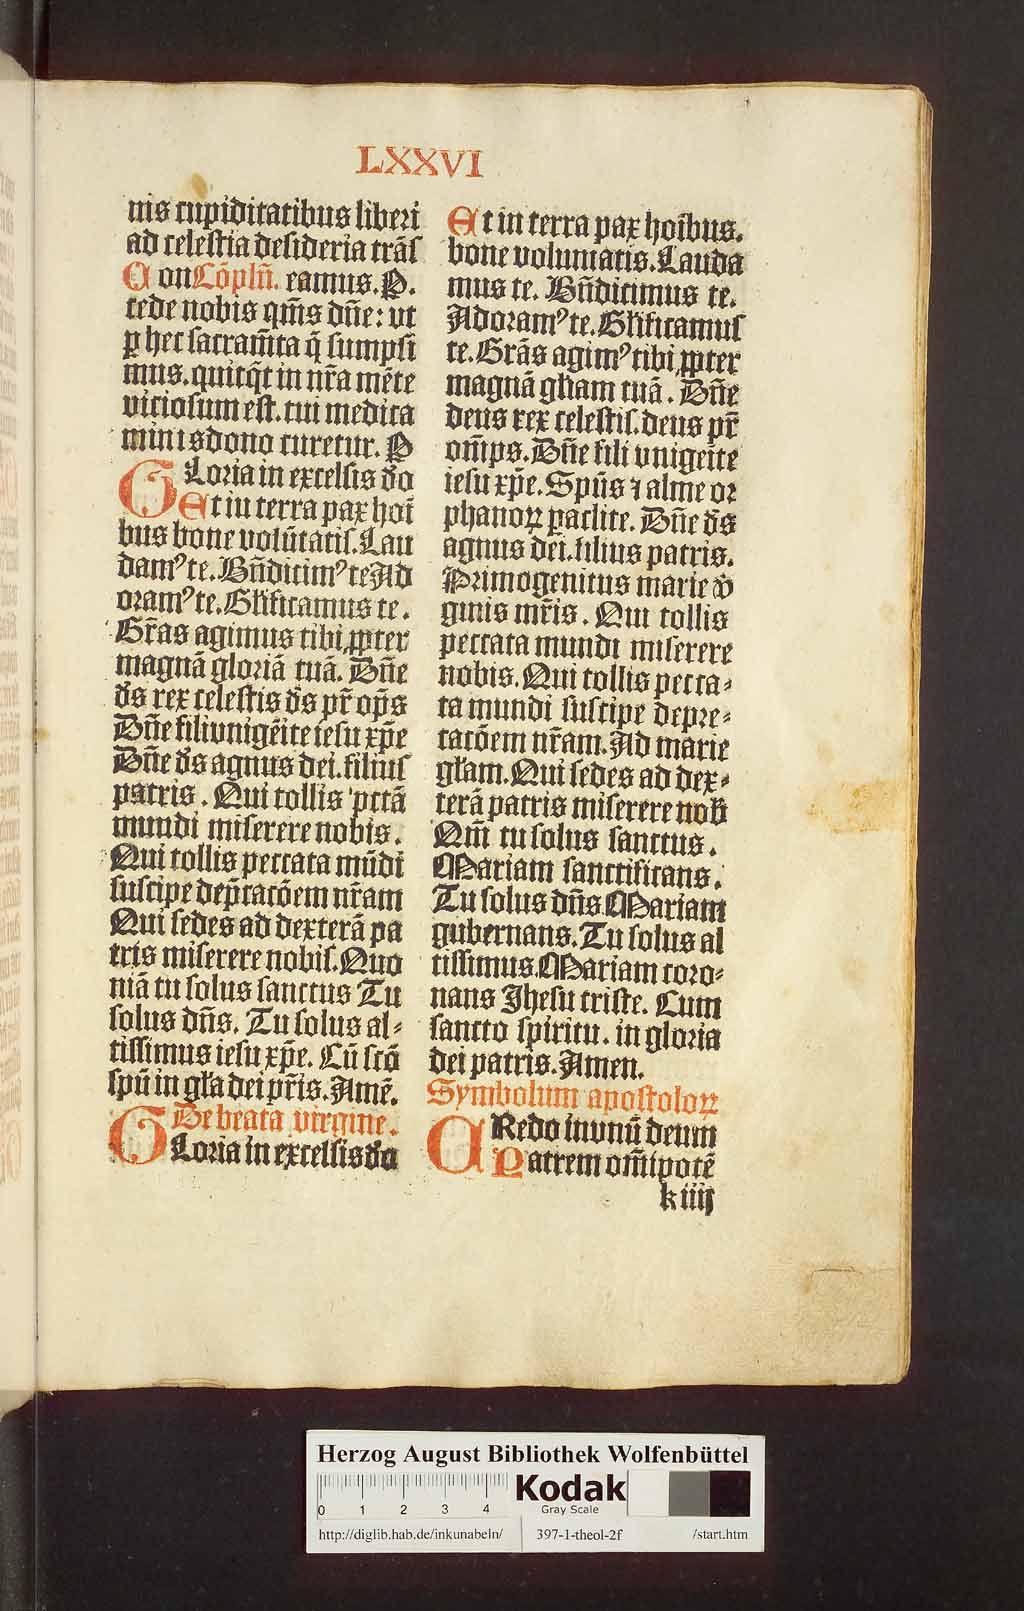 LXXVI
nis cupiditatibus liberi
ad celestia desideria trãs
Con Cõplñ. eamus. P.
cede nobis qm̃s dñe: vt
ꝑ hec sacram̃ta q̃ sumpsi
mus. quicq̃t in nr̃a mẽte
viciosum est. tui medica
minis dono curetur. P
GLoria in excelsis d̃o
Et iu terra pax hoĩ
bus bone volũtatis. Lau
damꝰ te. Bñdicimꝰ te Ad
oramꝰ te. Gl̃ificamus te.
Gr̃as agimus tibi ꝓpter
magnã gloriã tuã. Dñe
d̃s rex celestis d̃s pr̃ op̃s
Dñe fili vnigẽite iesu xp̃e
Dñe d̃s agnus dei. filius
patris. Qui tollis pctã
mundi miserere nobis.
Qui tollis peccata mũdi
suscipe dep̃cacõem nr̃am
Qui sedes ad dexterã pa
tris miserere nobis. Quo
niã tu solus sanctus Tu
solus dñs. Tu solus al⸗
tissimus iesu xp̃e. Cũ scõ
spũ in gl̃a dei pr̃is. Amẽ.
De beata virgine.
GLoria in excelsis d̃o
Et in terra pax hoĩbus.
bone voluntatis. Lauda
mus te. Bñdicimus te.
Adoramꝰ te. Gl̃ificamus
te. Grãs agimꝰ tibi ꝓpter
magnã gl̃iam tuã. Dñe
deus rex celestis. deus pr̃
om̃ps. Dñe fili vnigeĩte
iesu xp̃e. Spũs ⁊ alme or
phanoꝝ ꝑaclite. Dñe d̃s
agnus dei. filius patris.
Primogenitus marie ṽ
ginis mr̃is. Qui tollis
peccata mundi miserere
nobis. Qui tollis pecca⸗
ta mundi suscipe depre⸗
cacõem nr̃am. Ad marie
gl̃am. Qui sedes ad dex⸗
terã patris miserere nob̃
Qm̃ tu solus sanctus.
Mariam sanctificans.
Tu solus dñs Mariam
gubernans. Tu solus al
tissimus. Mariam coro⸗
nans Jhesu criste. Cum
sancto spiritu. in gloria
dei patris. Amen.
Symbolum apostoloꝝ
CRedo in vnũ deum
Patrem om̃ipotẽ
k iiij
Herzog August Bibliothek Wolfenbüttel
0 1 2 3 4 Kodak
Gray Scale
http://diglib.hab.de/inkunabeln/ 397-1-theol-2f /start.htm